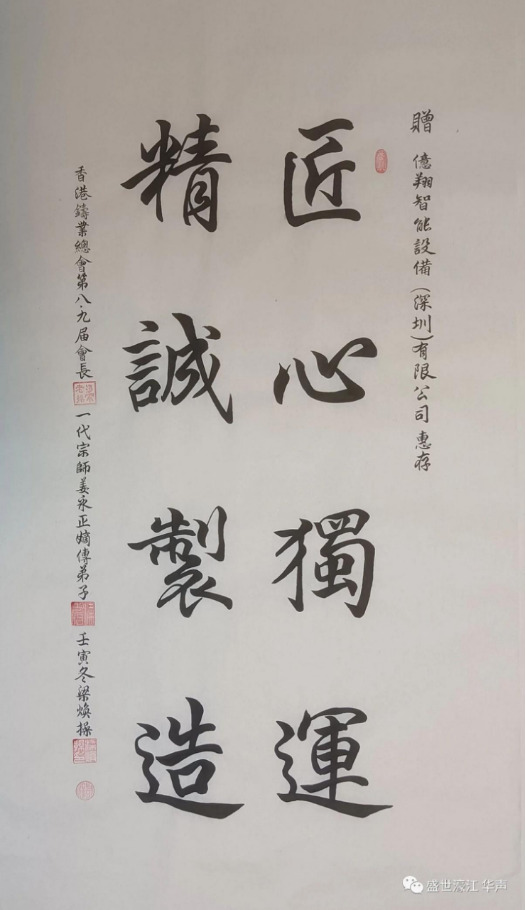 贈 億翔智能設備（深圳）有限公司 惠存
匠心獨運
精誠製造
香港鑄業總會第八·九届會長 一代宗師姜永正嫡傳弟子 壬寅冬梁煥操
盛世濠江 华声